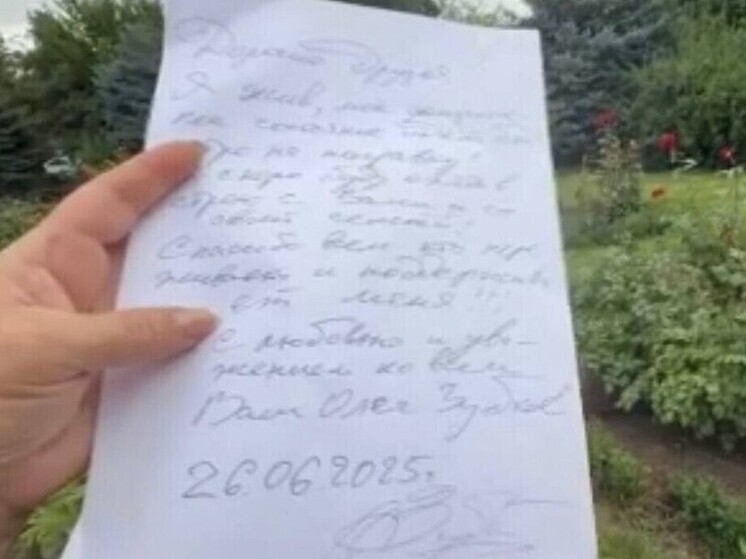 Дорогие друзья
Я жив, мое
мое состояние
на поправку!
скоро буду опять в
строю с Вами и со
своей семьей!
Спасибо всем кто пере
живает и поддержива
ет меня!!!
С любовью и ува-
жением ко всем
Ваш Олег Зубков
26.06.2025г.